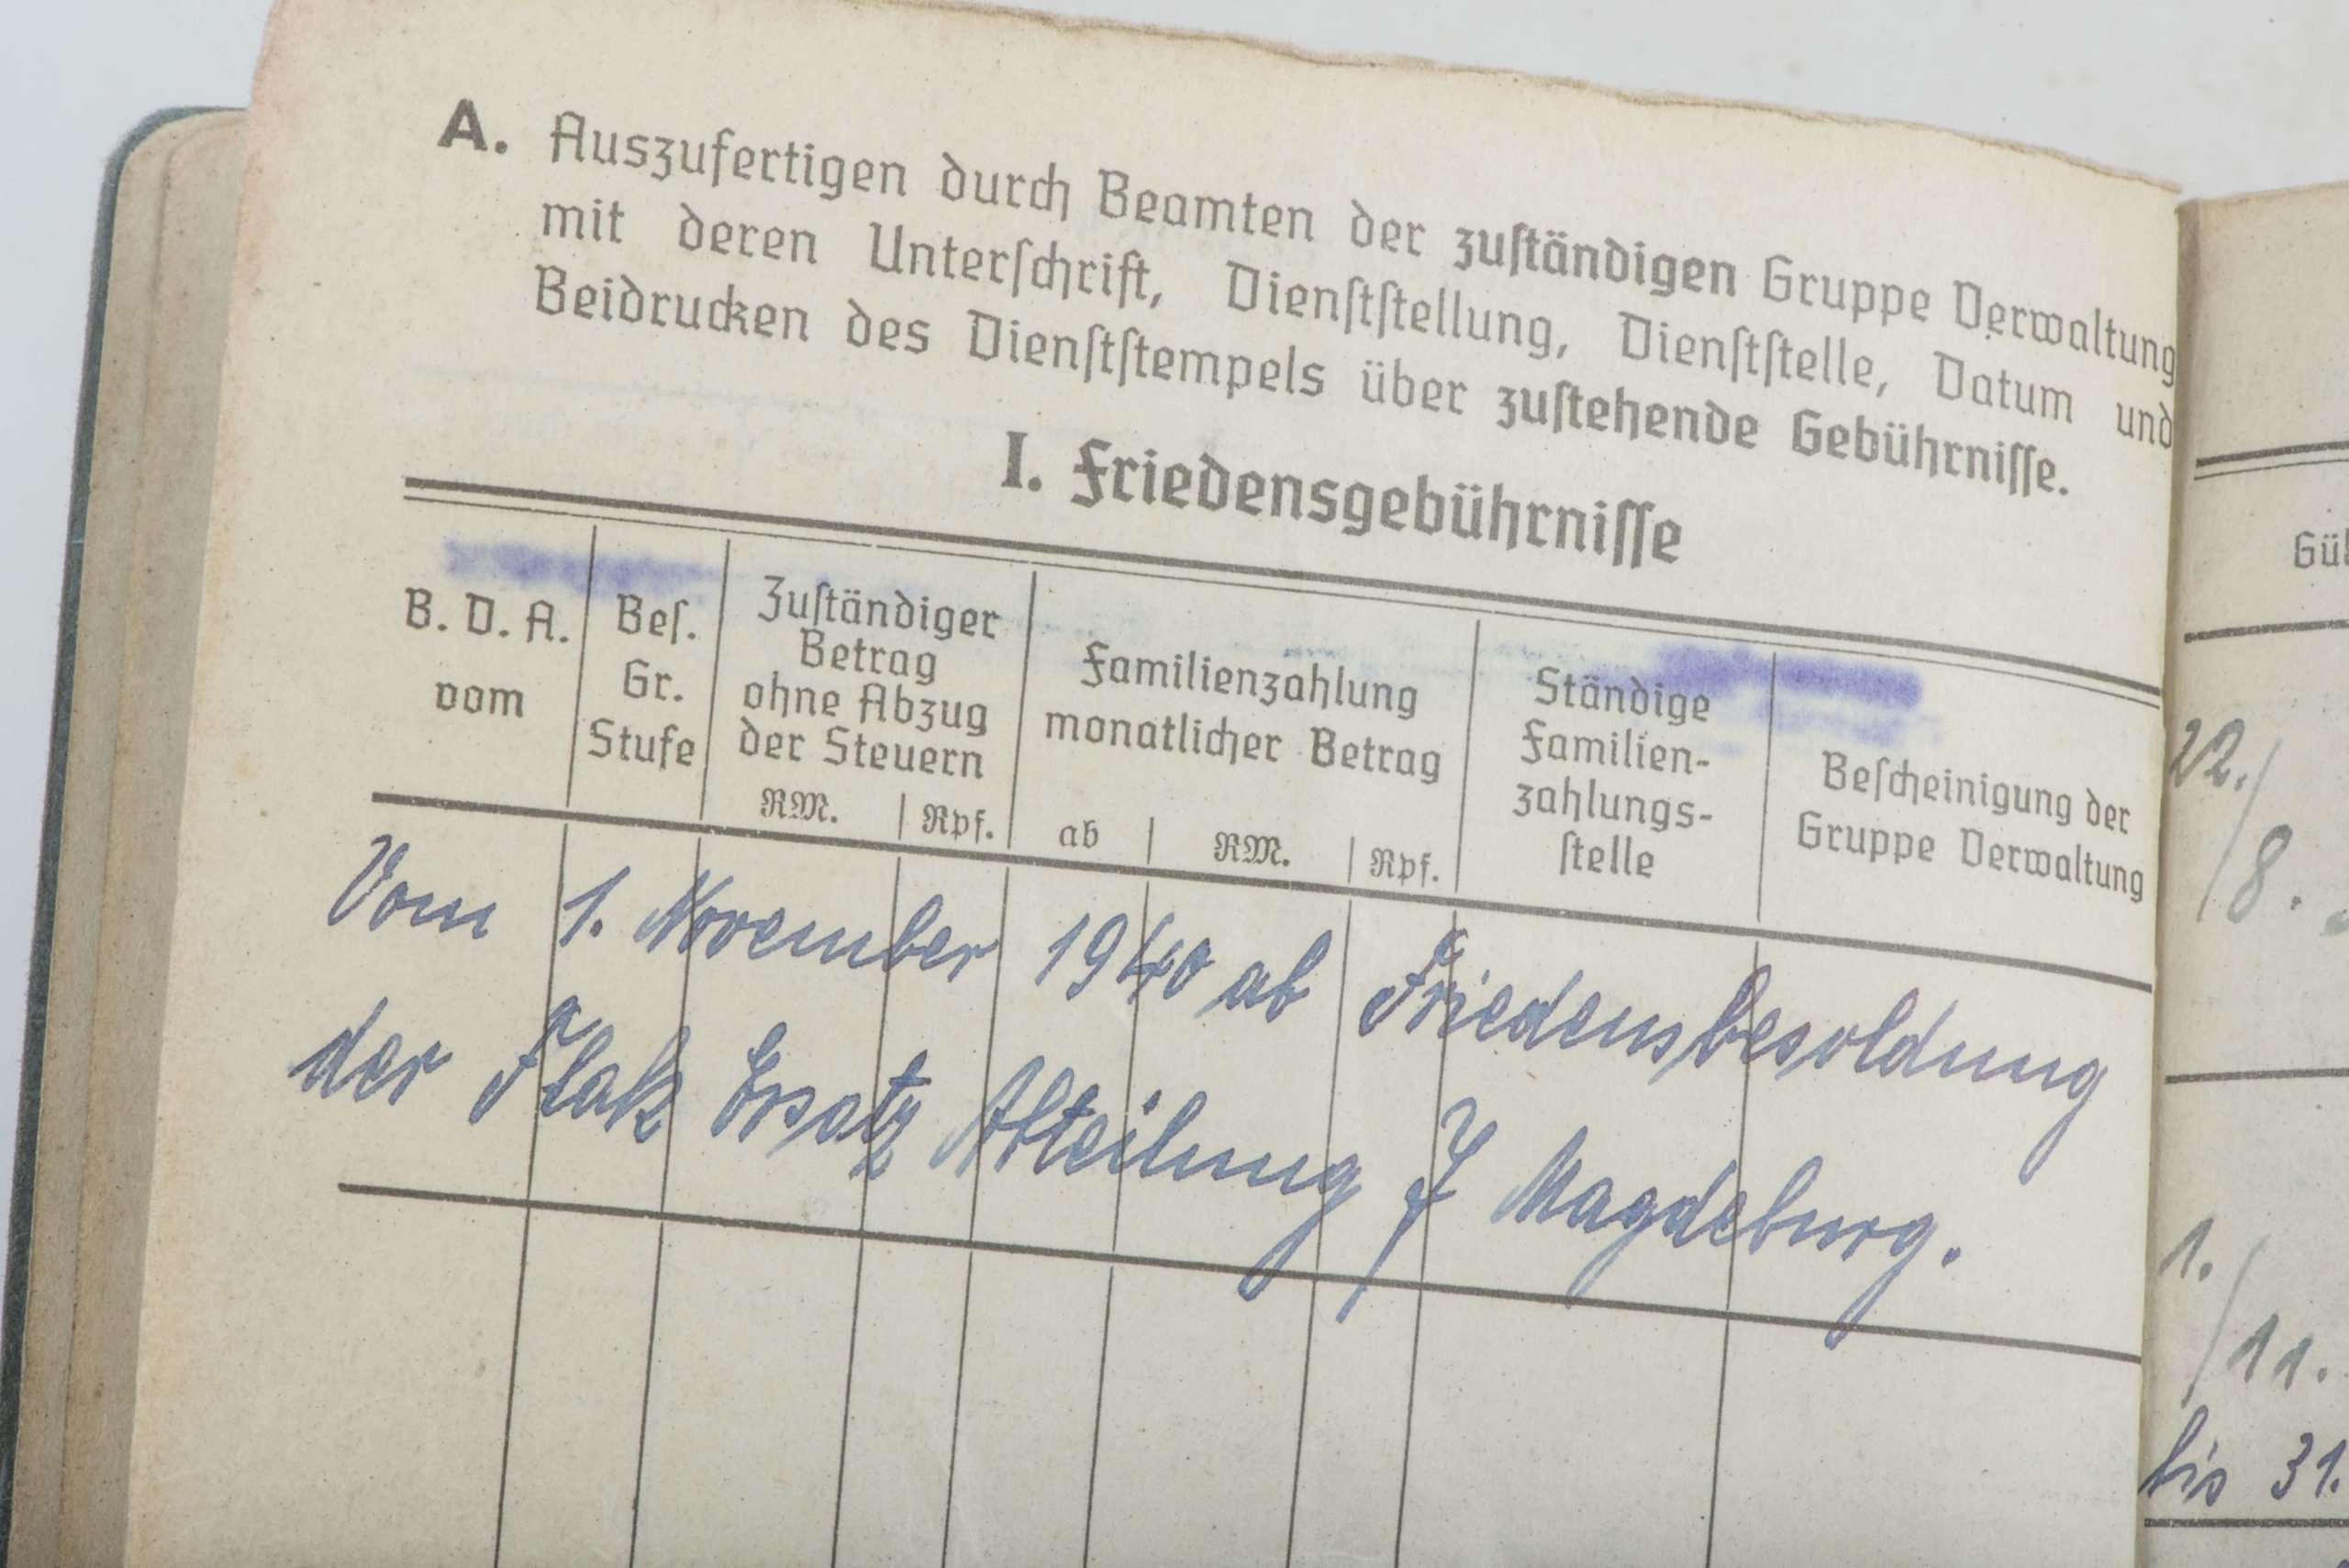 A. Auszufertigen durch Beamten der zuständigen Gruppe Verwaltung
mit deren Unterschrift, Dienststellung, Dienststelle, Datum und
Beidrucken des Dienststempels über zustehende Gebührnisse.
I. Friedensgebührnisse
B. D. A.
vom
Bes.
Gr.
Stufe
Zuständiger
Betrag
ohne Abzug
der Steuern
RM. Rpf.
Familienzahlung
monatlicher Betrag
ab RM. Rpf.
Ständige
Familien-
zahlungs-
stelle
Bescheinigung der
Gruppe Verwaltung
Vom 1. November 1940 ab Friedensbesoldung
der Flak Ersatz Abteilung 7 Magdeburg.
22./
8.
1./
11.
bis 31.